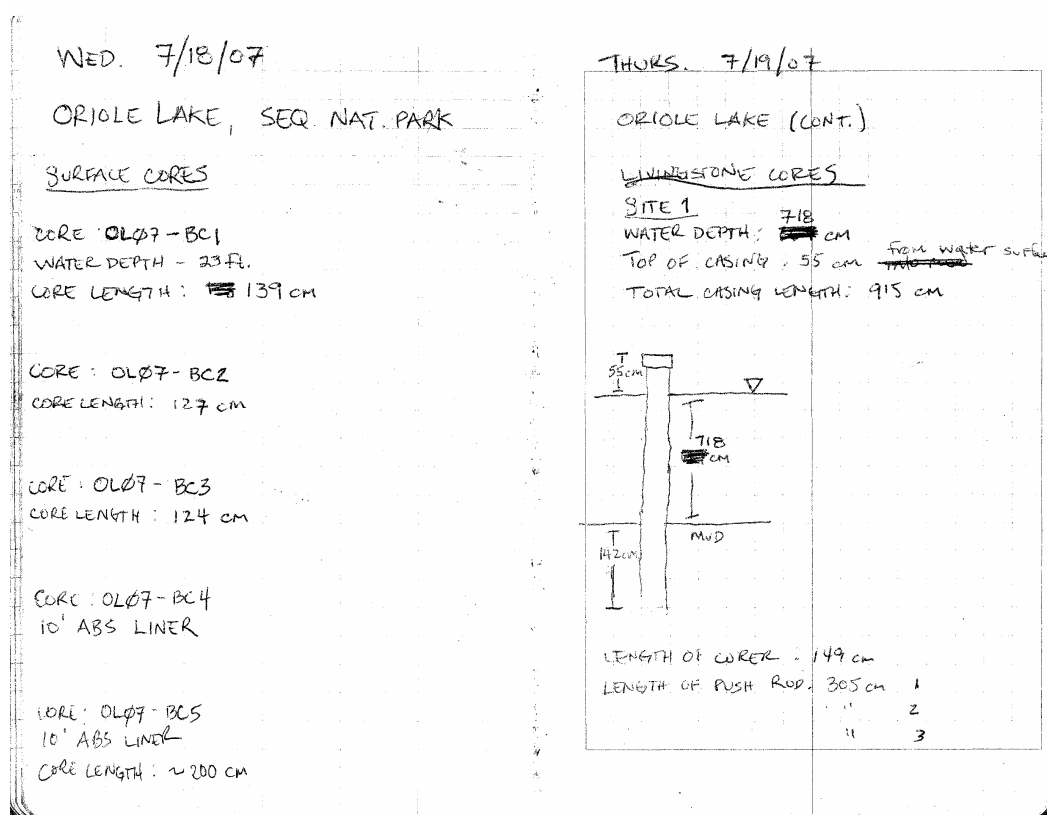 WED. 7/18/07
ORIOLE LAKE, SEQ. NAT. PARK
SURFACE CORES
CORE : OLØ7-BC1
WATER DEPTH - 23 ft.
CORE LENGTH : 139 cm
CORE : OLØ7-BC2
CORE LENGTH : 127 cm
CORE : OLØ7-BC3
CORE LENGTH : 124 cm
CORE : OLØ7-BC4
10' ABS LINER
CORE : OLØ7-BC5
10' ABS LINER
CORE LENGTH : ~200 cm
THURS. 7/19/07
ORIOLE LAKE (CONT.)
LIVINGSTONE CORES
SITE 1
WATER DEPTH : 718 cm
TOP OF CASING . 55 cm from water surfa
TOTAL CASING LENGTH : 915 cm
55cm
718
cm
MUD
142cm
LENGTH OF CORER . 149 cm
LENGTH OF PUSH ROD . 305 cm 1
" 2
" 3